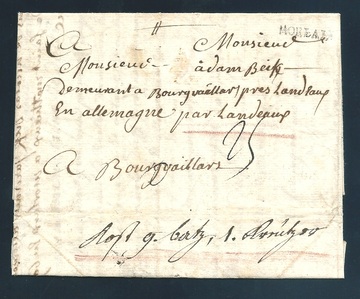 MORLAIX
A Monsieur
Monsieur adam Beck
demeurant a Bourgvaillart pres Landeaux
En allemagne par Landeaux
A Bourgvaillart
Kost 9. batz, 1. Kreutzer